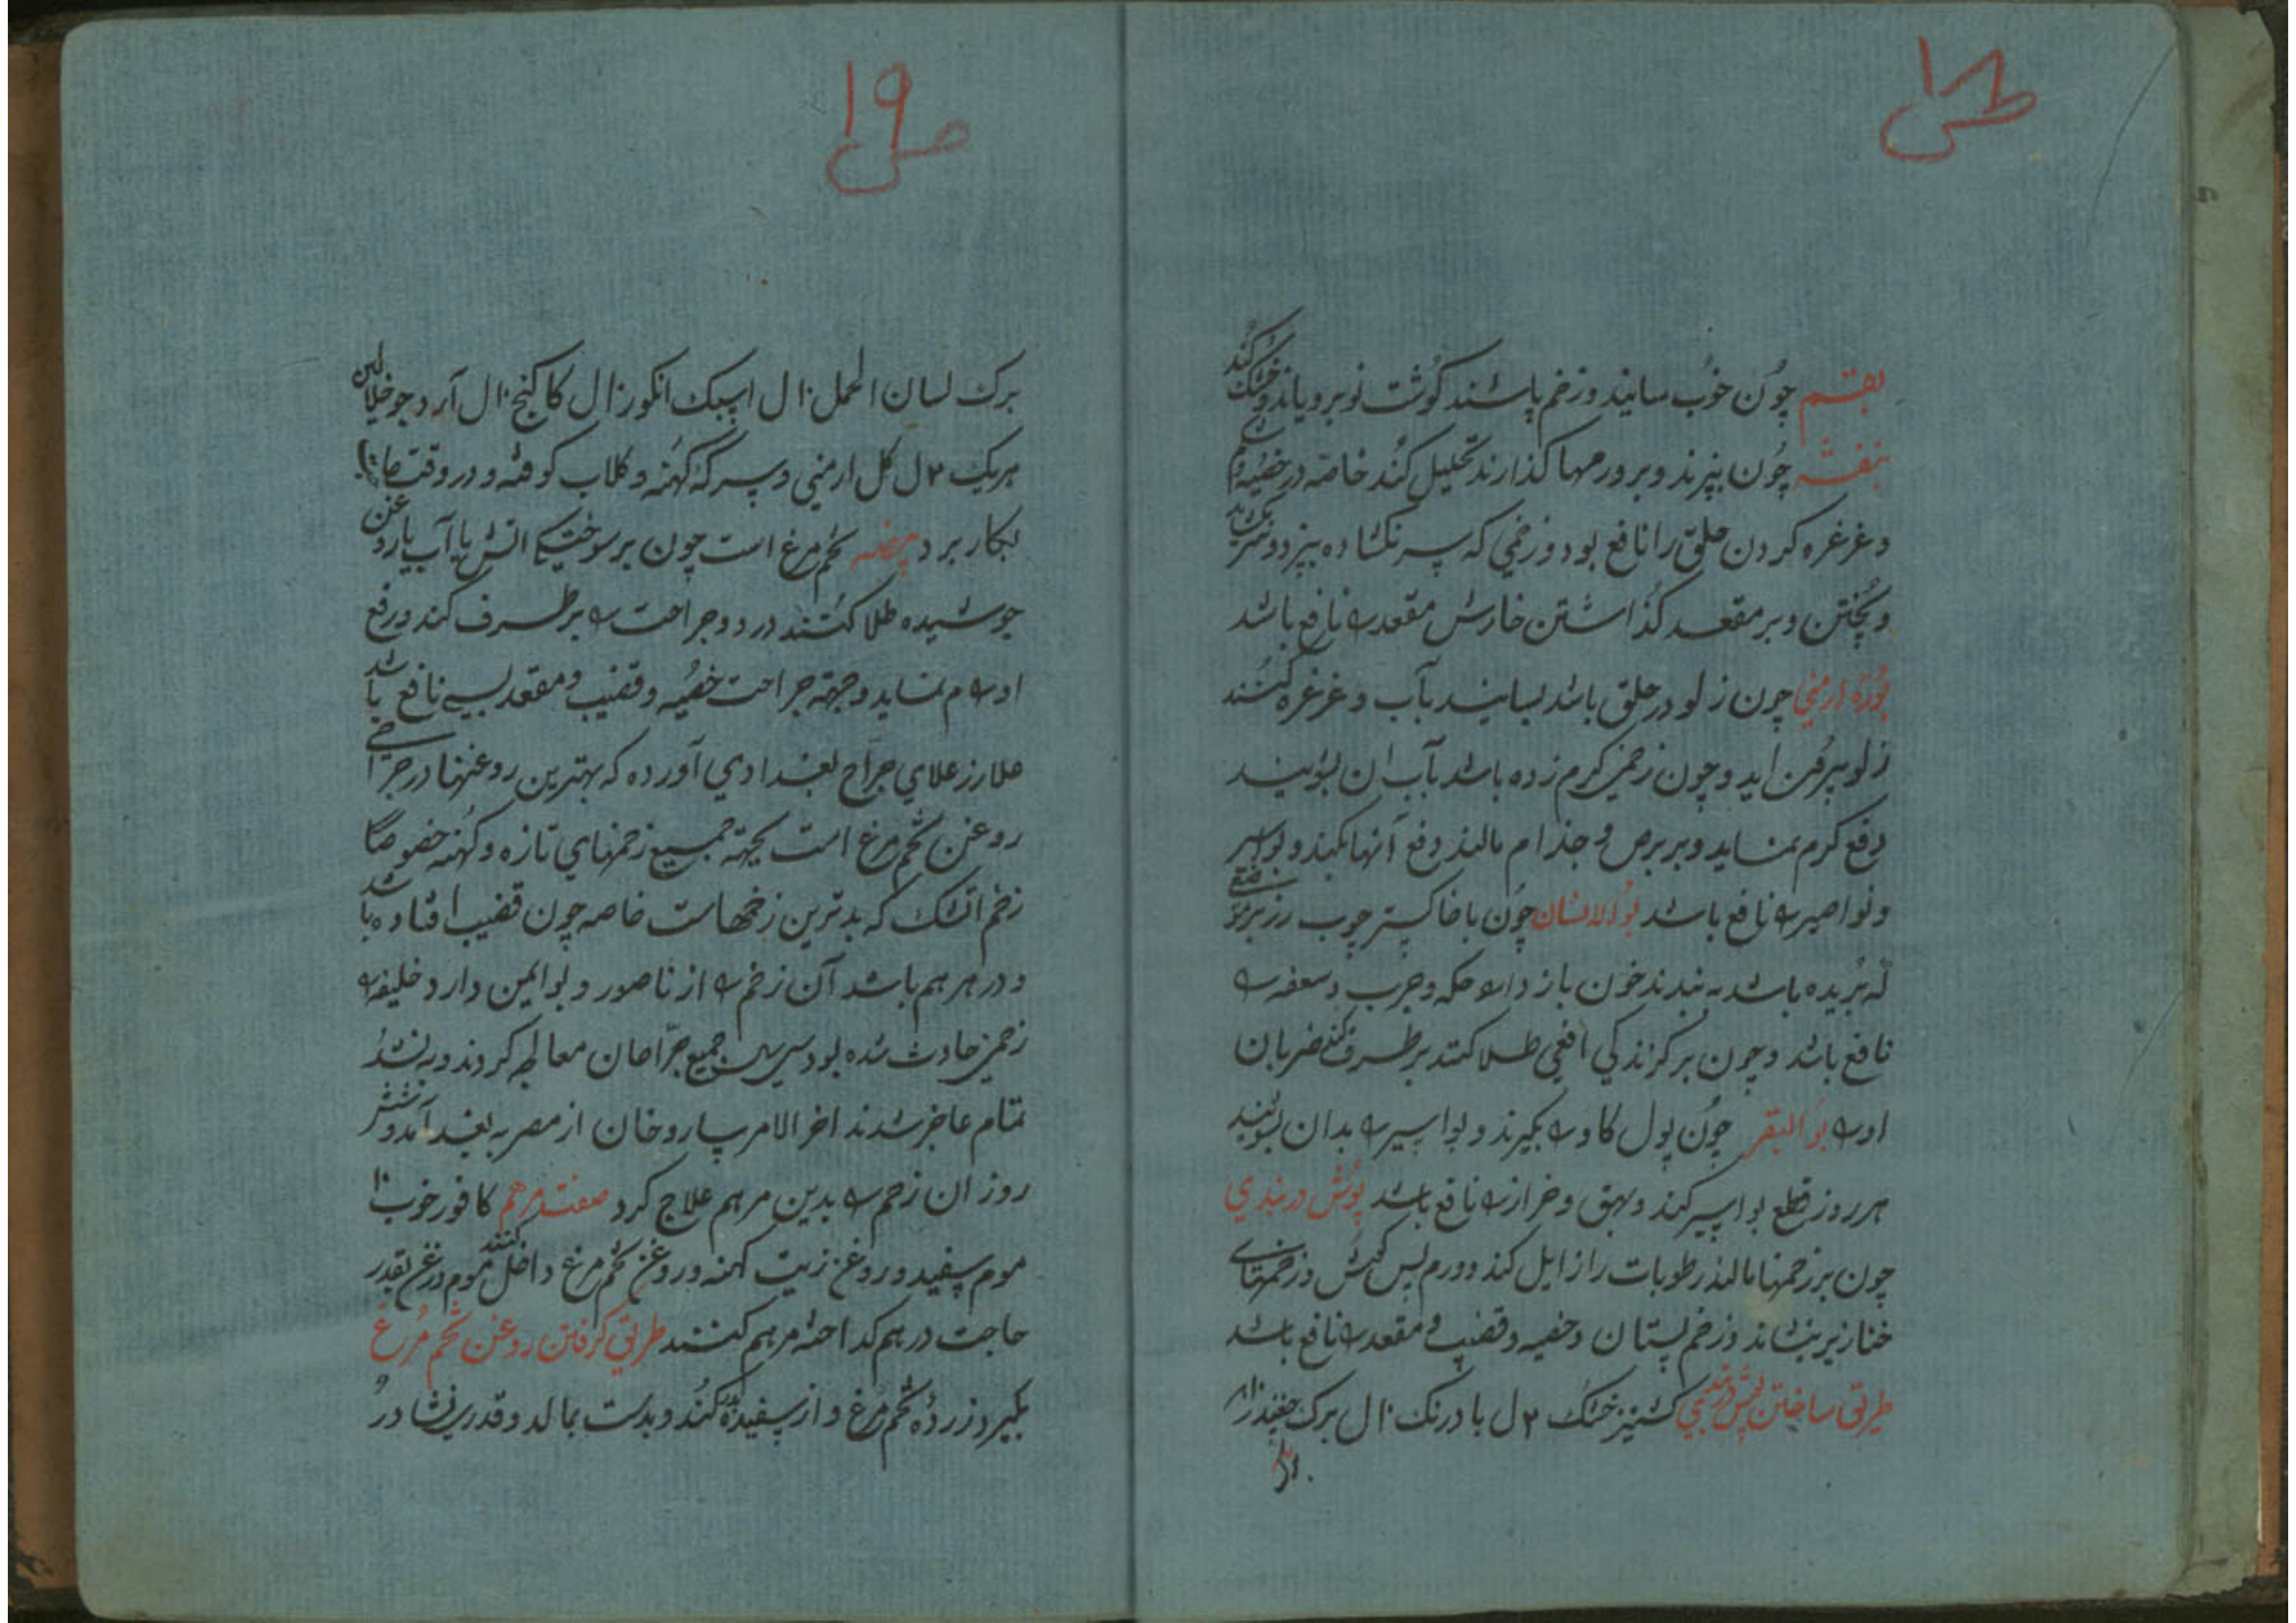 ص ۱۸
بقم چون خوب سایند و زخم پاشند کوشت نو برویاند و خشک کند
بنفشه چون بپزند و بر ورمها کذارند تحلیل کند خاصه در خصیه
و غرغره کردن حلق را نافع بود و زخمی که سر نکشاده بپزد و
و پختن و بر مقعد کذاشتن خارش مقعد را نافع باشد
بوره ارمنی چون زلو در حلق باشد بسایند بآب و غرغره کنند
زلو بیرون اید و چون زخمی کرم زده باشد بآب ان بشویند
دفع کرم نماید و بر برص و جذام مالند دفع آنها بکند و بواسیر
و نواصیر را نافع باشد بول الانسان چون با خاکستر چوب رز بر موضعی
که بریده باشد به بندند خون باز دارد حکه و جرب و سعفه را
نافع باشد و چون بر کزندکی افعی طلا کنند برطرف کند ضربان
او را بول البقر چون بول کاو را بکیرند و بواسیر را بدان بشویند
هر روز قطع بواسیر کند و بهق و خراز را نافع باشد پوش دربندی
چون بر زخمها مالند رطوبات را زایل کند و ورم پس کوش و زخمهای
خنازیر بنشاند و زخم پستان و خصیه و قضیب و مقعد را نافع باشد
طریق ساختن پوش دربندی کشنیز خشک ۲ ل بادرنک ۱۰ ل برک چغندر ۱۰ ل
ص ۱۹
برک لسان الحمل ۱۰ ل اسپک انکور ۱۰ ل کاکنج ۱۰ ل آرد جو
هریک ۲ ل کل ارمنی و سرکه کهنه و کلاب کوفته و در وقت حاجت
بکار برد بیضه تخم مرغ است چون بر سوختکی اتش با آب یا روغن
جوشیده طلا کنند درد و جراحت را برطرف کند و رفع
اورام نماید و جهة جراحت خصیه و قضیب و مقعد بسی نافع باشد
ملا رز علای جراح بغدادی آورده که بهترین روغنها در جراحی
روغن تخم مرغ است بجهته جمیع زخمهای تازه و کهنه خصوصا
زخم اتشک که بدترین زخمهاست خاصه چون قضیب افتاده باشد
و در هر هم باشد آن زخم را از ناصور و بو ایمن دارد خلیفه را
زخمی حادث شده بود جمیع جراحان معالجه کردند و به نشد
تمام عاجز شدند اخر الامر پیاروخان از مصر به بغداد آمد و شش
روز ان زخم را بدین مرهم علاج کرد صفت مرهم کافور خوب
موم سفید و روغن زیت کهنه و روغن تخم مرغ داخل کنند موم و روغن بقدر
حاجت درهم کداخته مرهم کنند طریق کرفتن روغن تخم مرغ
بکیرد زرده تخم مرغ و از سفیده کند و بدست بمالد و قدری نشادر